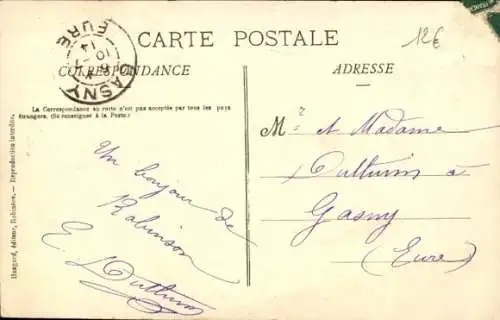 CARTE POSTALE
12€
GASNY
EURE
CORRESPONDANCE
ADRESSE
La Correspondance au recto n'est pas acceptée par tous les pays
étrangers. (Se renseigner à la Poste.)
Un bonjour de
Robinson
E. Dutturin
Mr et Madame
Dutturin à
Gasny
(Eure)
éditeur, Robinson. — Reproduction interdite.